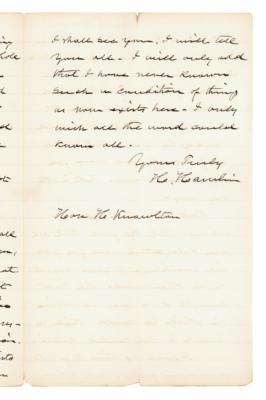 I shall see you, I will tell
you all - I will only add
that I have never known
such a condition of things
as now exists here - I only
wish all the word could
know all -
Yours Truly
H. Hamlin
Hon H Knowlton